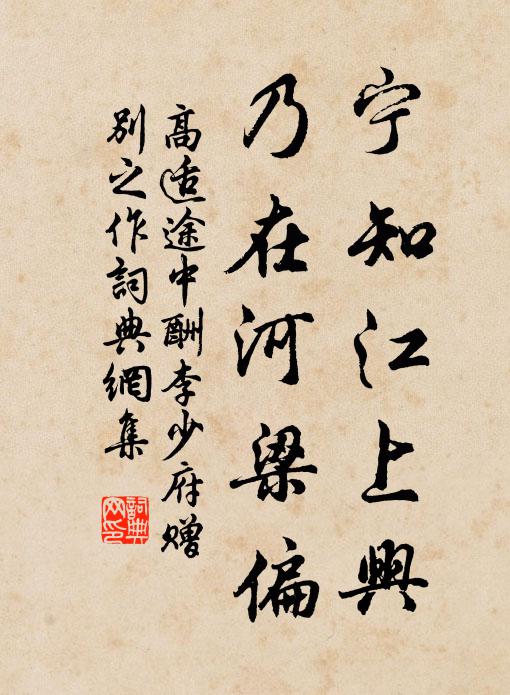 宁知江上興
乃在河梁偏
高适途中酬李少府赠
别之作詞典網集
詞典網印